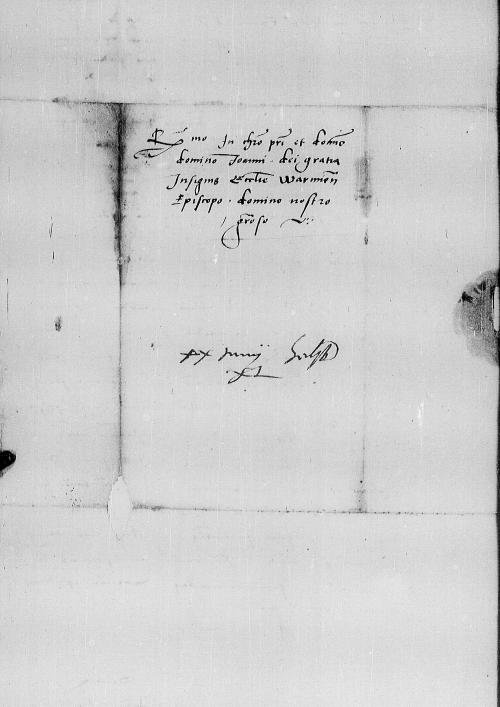 R mo In chro pri et domo
domino Joanni · dei gratia
Insignis Ecclie Warmien
Episcopo · domino nostro
groso
xx Junij
XL